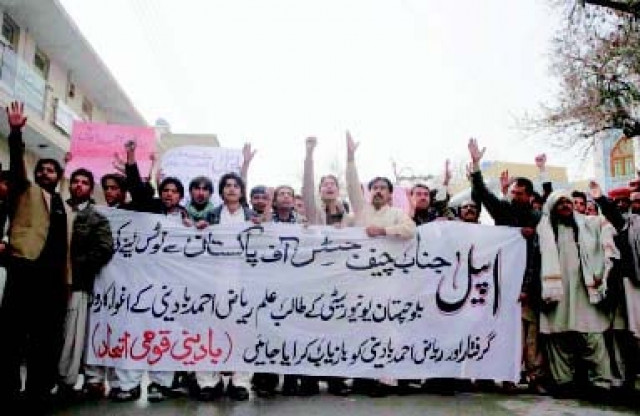 اپیل جناب چیف جسٹس آف پاکستان سے نوٹس لینے کی
بلوچستان یونیورسٹی کے طالب علم ریاض احمد بادینی کے اغوا کاروں
گرفتار اور ریاض احمد بادینی کو بازیاب کرایا جائیں (بادینی قومی اتحاد)